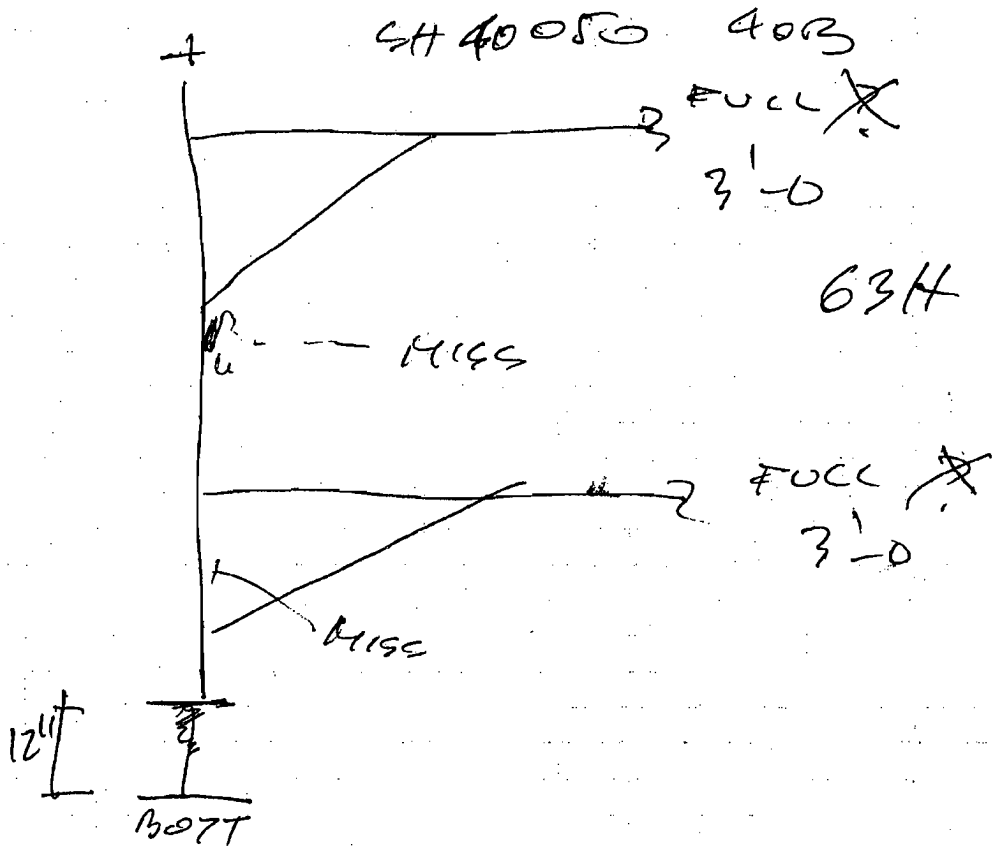 SH 40050 40B
FULL
3'-0
63H
MISS
FULL
3'-0
MISS
12"
BOTT